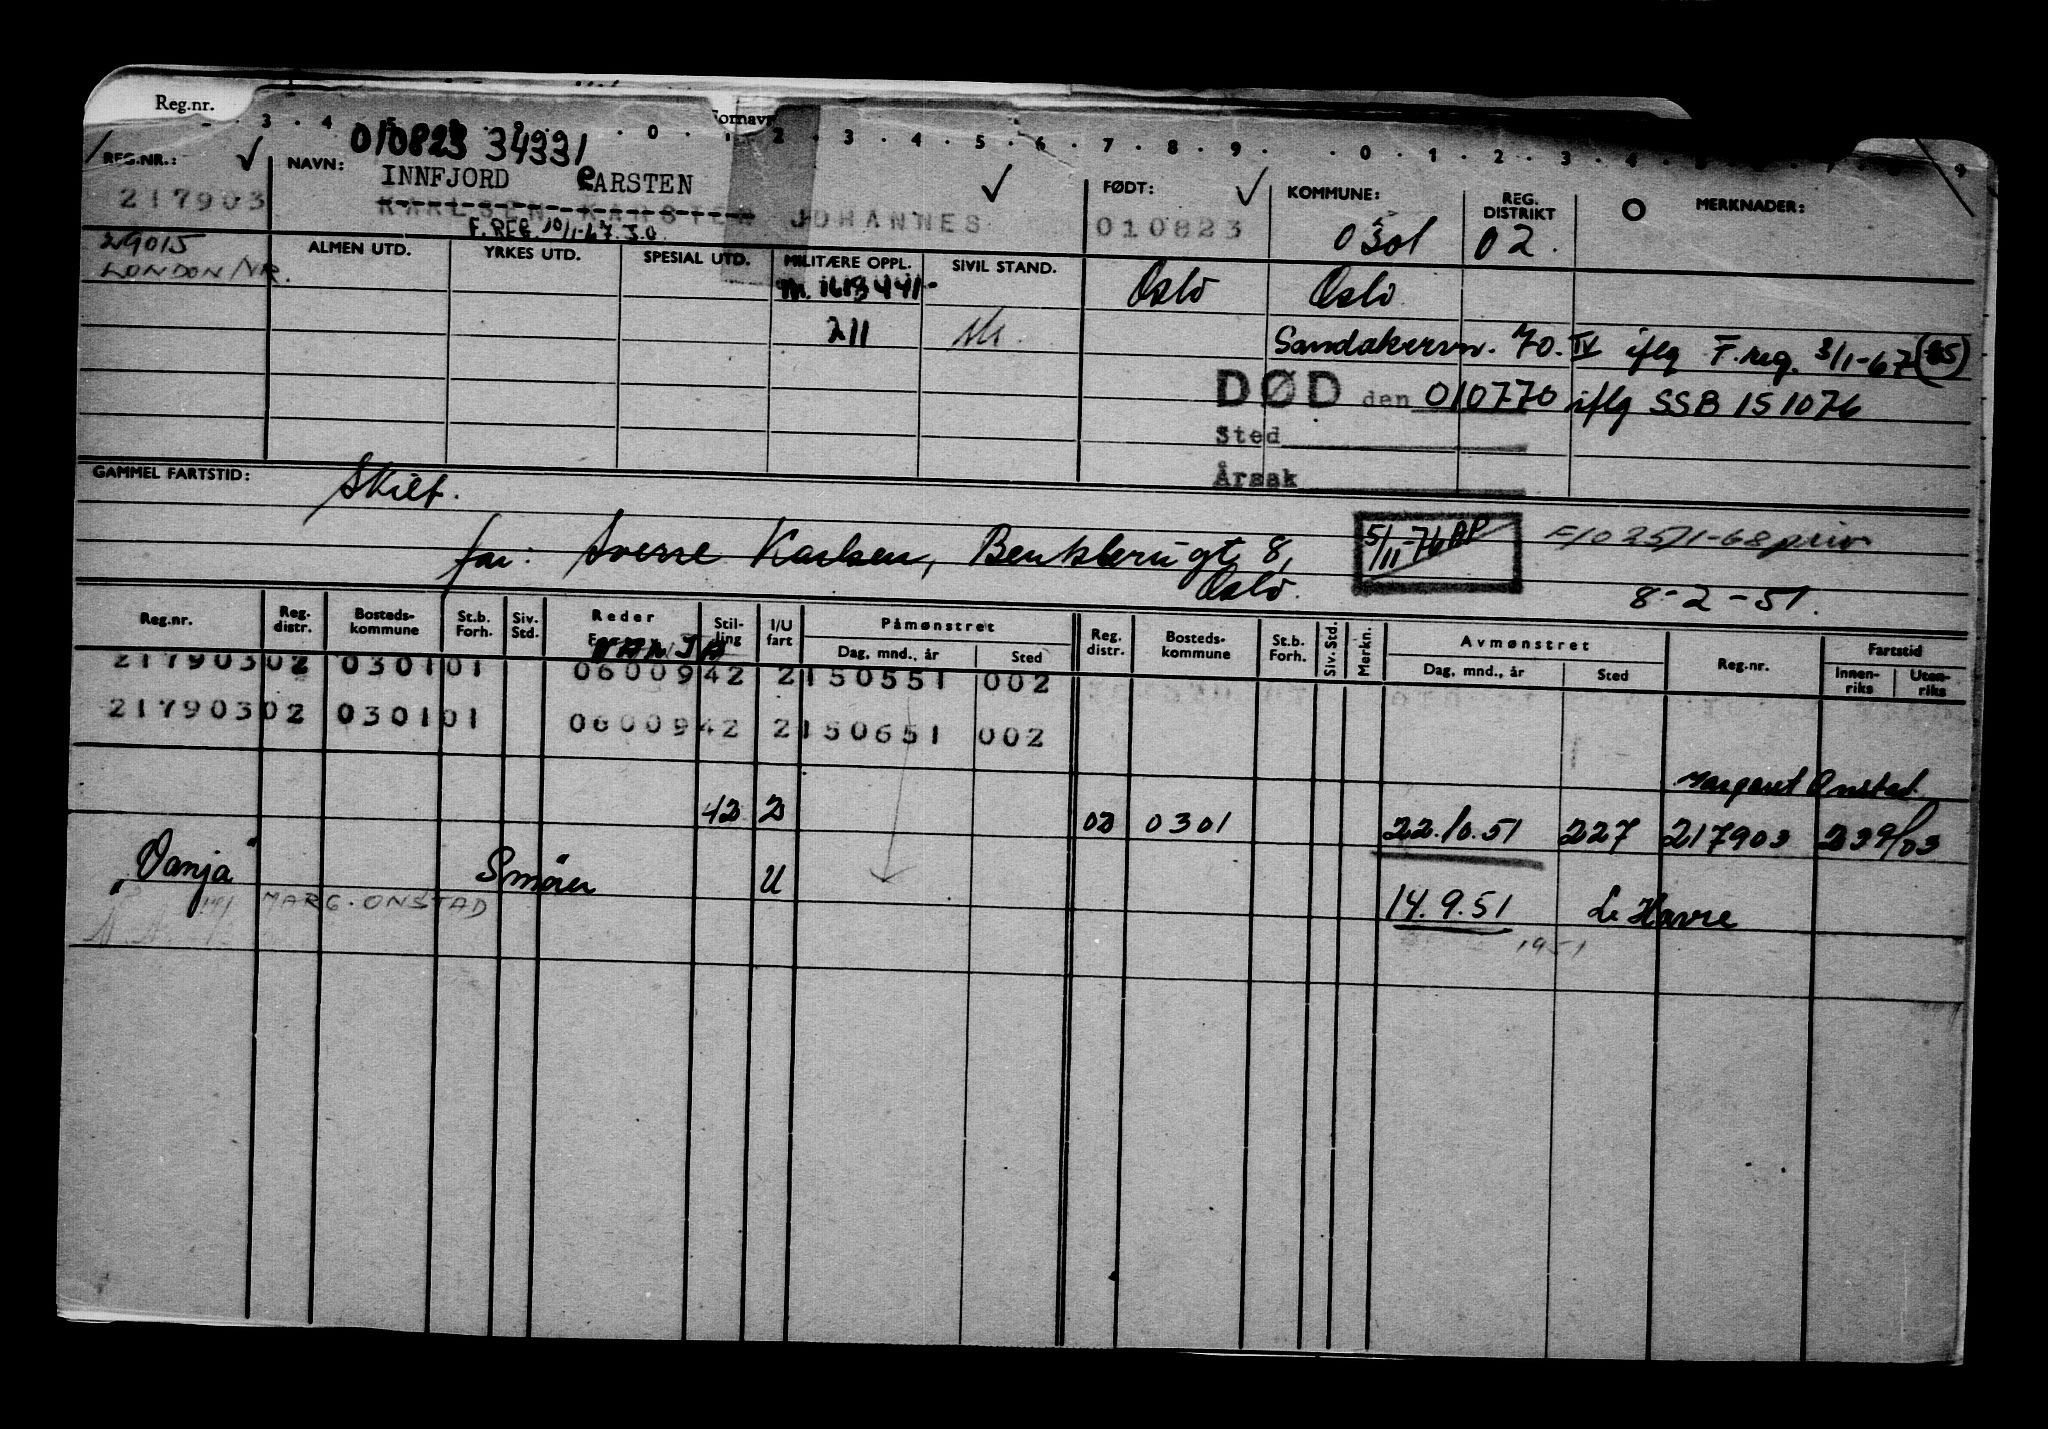 Reg.nr.
Fornavn
3 4 0 2 3 4 5 6 7 8 9 0 1 2 3 4
010823 34331
REG.NR.: NAVN: INNFJORD CARSTEN FØDT: KOMMUNE: REG. DISTRIKT O MERKNADER:
217903 KARLSEN KARSTEN JOHANNES 010823 0301 02.
F. REG 10/1-67 J.O.
29015 ALMEN UTD. YRKES UTD. SPESIAL UTD. MILITÆRE OPPL. SIVIL STAND. Oslo Oslo
LONDON/NR.
211
Sandakervn. 70. IV iflg F.reg. 3/1-67 (85)
DØD den 010770 iflg SSB 151076
Sted
Årsak
GAMMEL FARTSTID: Skilt.
far: Sverre Karlsen, gt 8, Oslo.
5/11-76
8-2-51.
Reg.nr. Reg. distr. Bosteds-kommune St.b. Forh. Siv. Std. Reder Stil-ling I/U fart Påmønstret Dag, mnd., år Sted Reg. distr. Bosteds-kommune St.b. Forh. Siv. Std. Merkn. Avmønstret Dag, mnd., år Sted Reg.nr. Fartstid Innen-riks Uten-riks
217903 02 0301 01 06009 42 2 150551 002
217903 02 0301 01 06009 42 2 150651 002
Margaret Onstad
42 2 02 0301 22.10.51 227 217903
"Vanja" Smører U 14.9.51 Le Havre
MARG. ONSTAD
1951